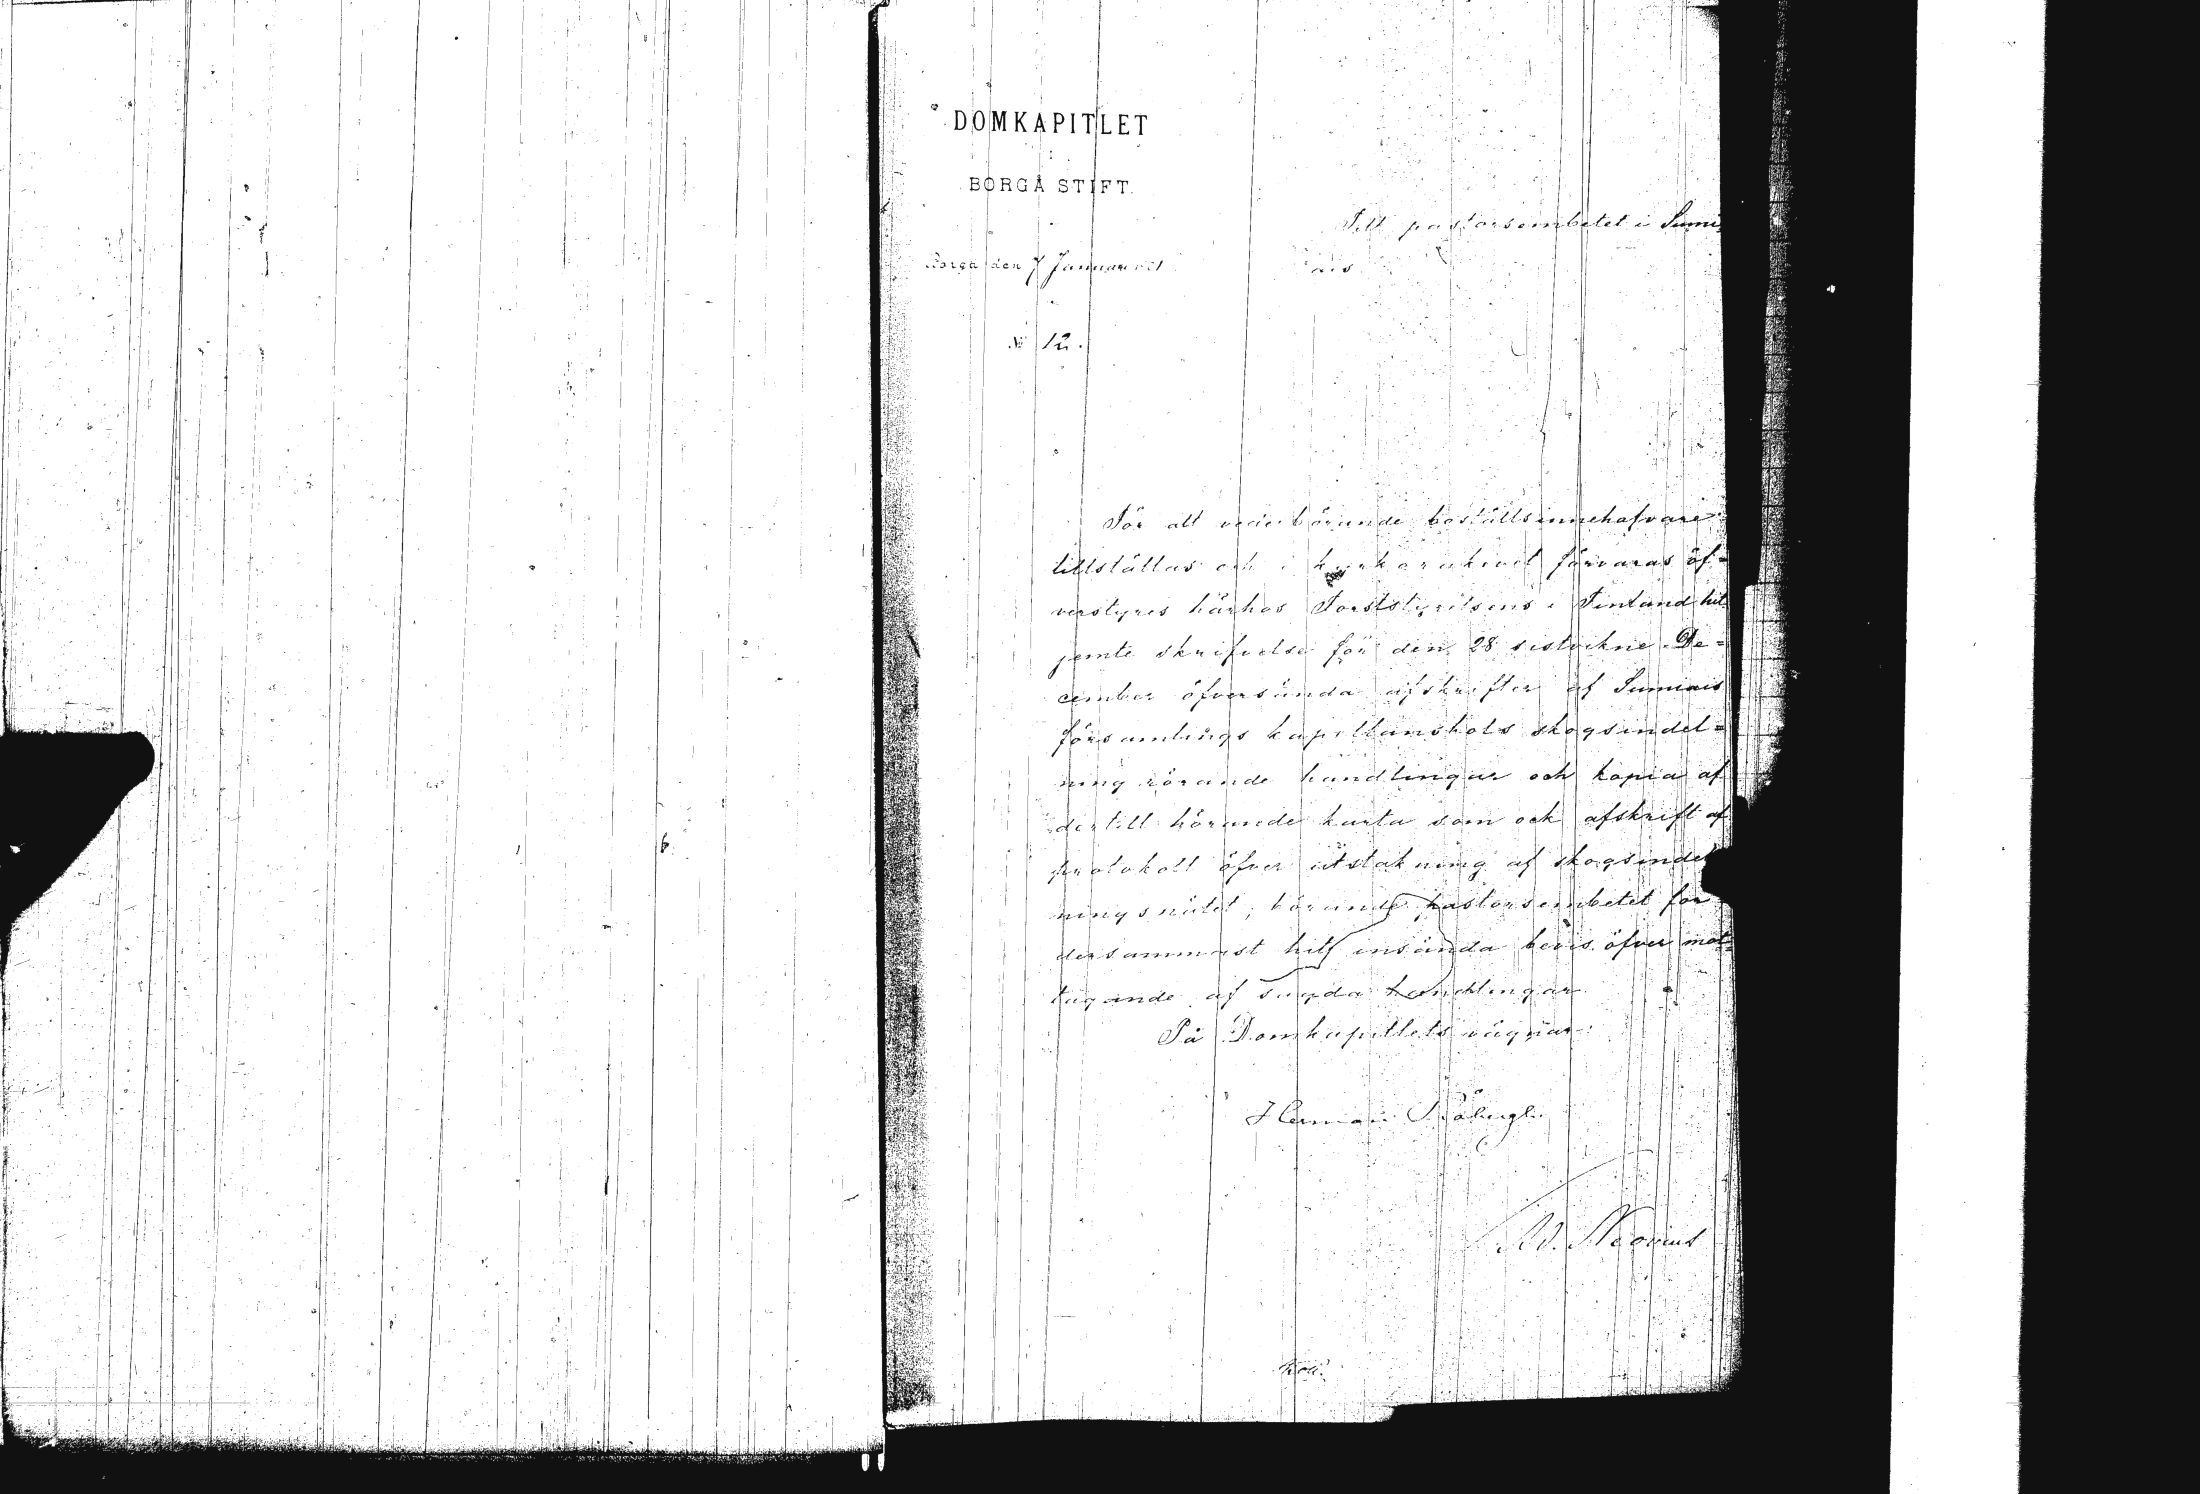 DOMKAPITLET
i
BORGÅ STIFT.
Till pastorsembetet i Sumi-
Borgå den 7 Januari
ais
№ 12.
För att vederbörande boställsinnehafvare
tillställas och i kyrkoarkivet förvaras öf-
verstyres härhos Forststyrelsens i Finland hit
jemte skrifvelse för den 28 sistvikne De-
cember öfversända afskrifter af Sumiais
församlings kapellansbols skogsindel-
ning rörande handlingar och kopia af
dertill hörande karta som ock afskrift af
protokoll öfver utstakning af skogsindel
ningsnätet, börande pastorsembetet för
dersammast hit insända bevis öfver mot-
tagande af sagda handlingar.
På Domkapitlets vägnar:
Herman Råbergh.
W. Neovius